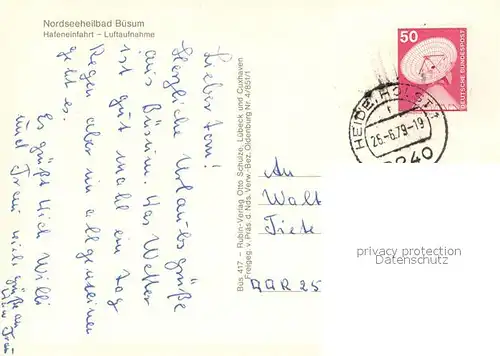 Nordseeheilbad Büsum
Hafeneinfahrt – Luftaufnahme
Lieber Tom!
Herzliche Urlaubsgrüße
aus Büsum. Das Wetter
ist gut mahl ein Tag
Regen aber im allgemeinen
geht es.
Es grüßt dich Willi
und Frau
Büs 417 – Rubin-Verlag Otto Schulze, Lübeck und Cuxhaven
Freigeg. v. Präs. d. Nds. Verw.-Bez. Oldenburg Nr. 4/651/1
An
Walt
Tiete
50
DEUTSCHE BUNDESPOST
HEIDE, HOLST 1
r
26.-6.79-19
2240
privacy protection
Datenschutz